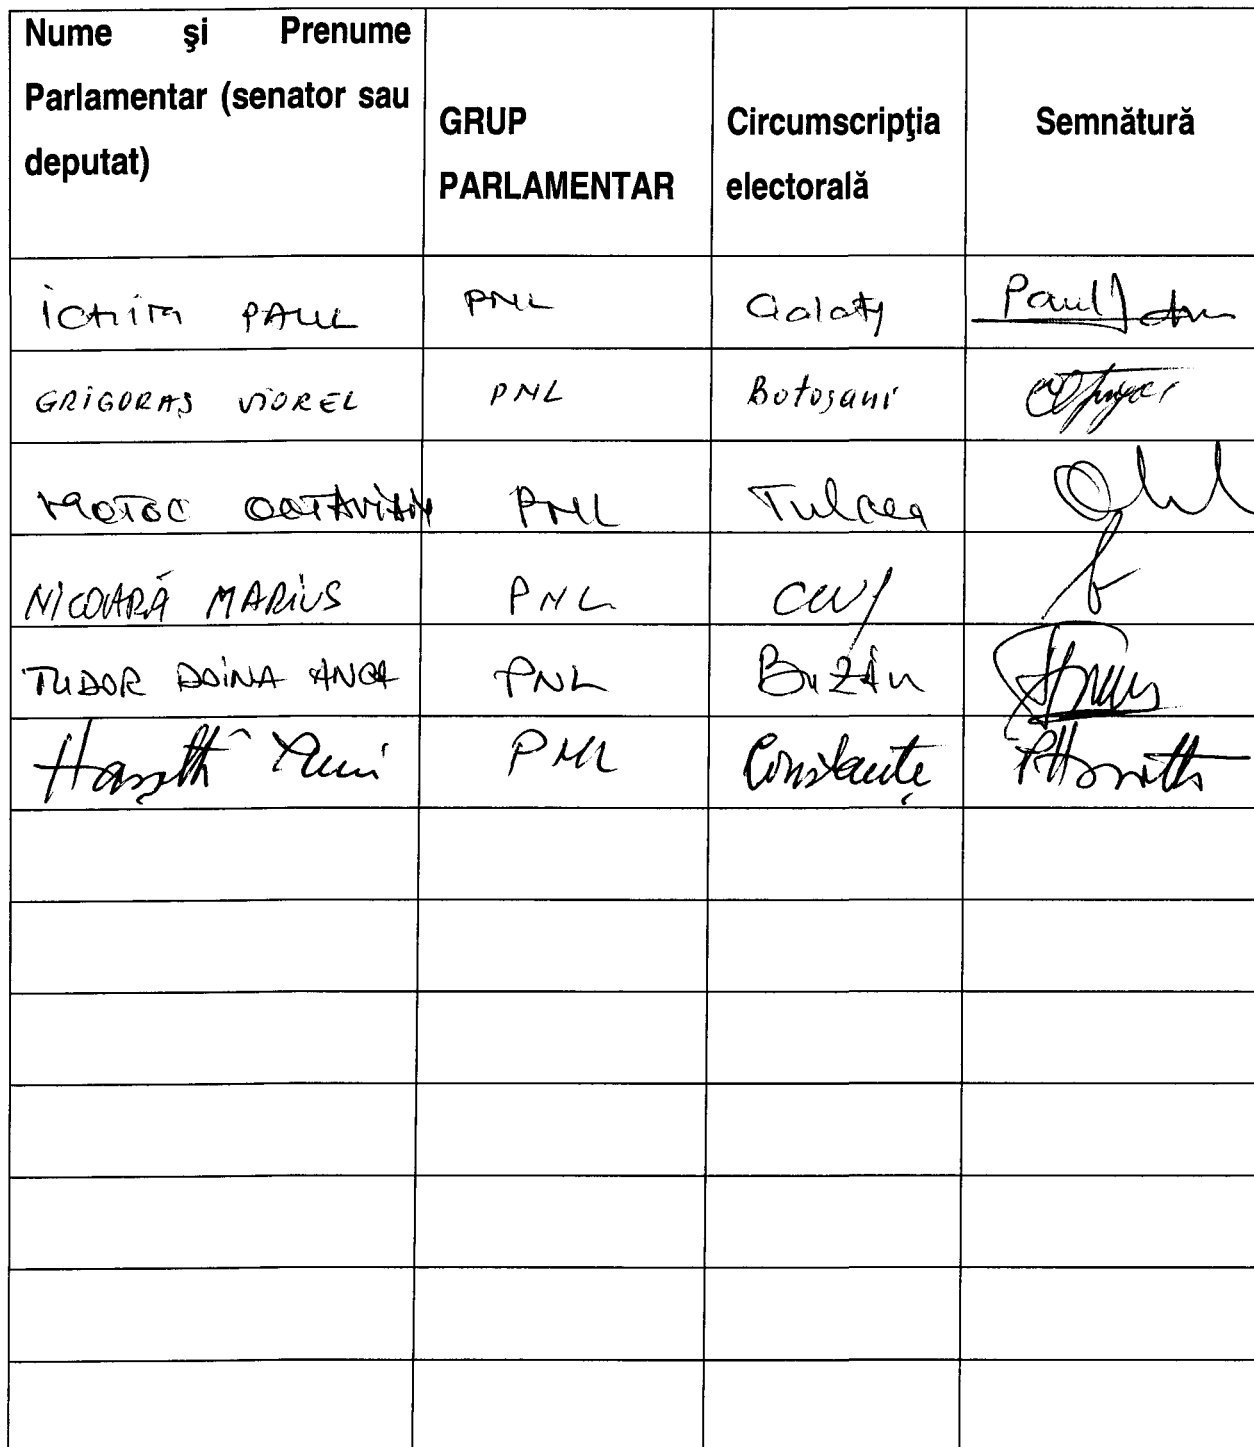 Nume şi Prenume
Parlamentar (senator sau
deputat)
GRUP
PARLAMENTAR
Circumscripţia
electorală
Semnătură
PAUL PNL Galaţi Paul
GRIGORAŞ VIOREL PNL Botoşani
MOTOC OCTAVIAN PNL Tulcea
NICOARĂ MARIUS PNL CLUJ
TUDOR DOINA ANCA PNL BUZĂU
PNL Constanţa